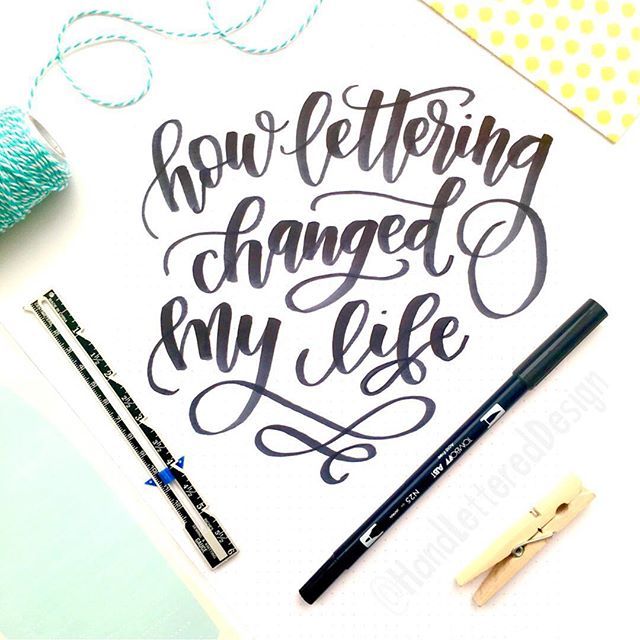 how lettering
changed
my life
TOMBOW ABT
N25
@HandLetteredDesign
1
1½
2
2½
3
3½
4
4½
5
5½
6